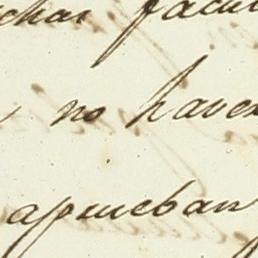 chas facul
, no haver
aprueban